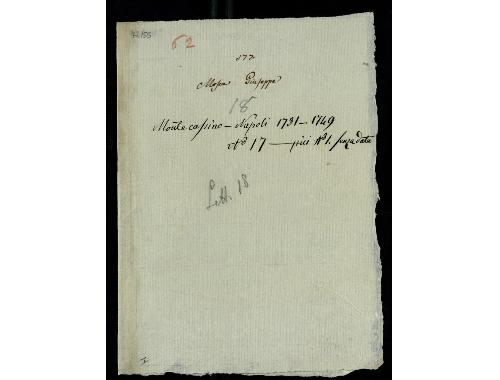 62
177
Mosca Giuseppe
18
Montecassino – Napoli 1731–1749
N° 17 — più N° 1. senza data
Lett. 18